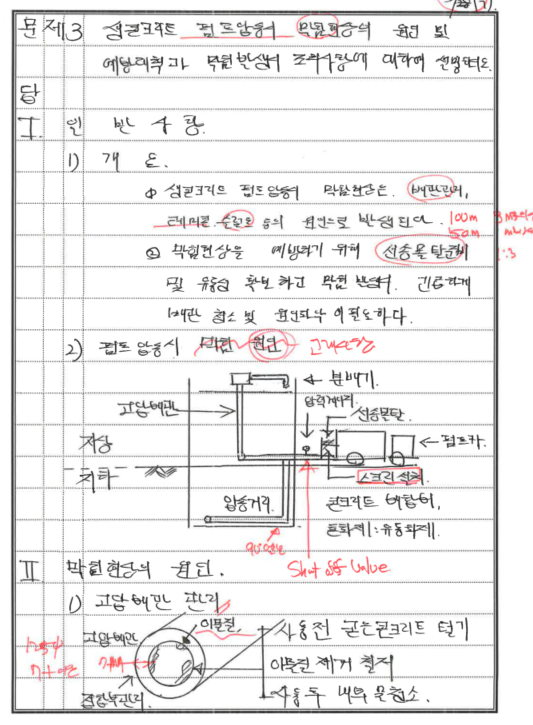 문제3 생콘크리트 펌프압송시 막힘현상의 원인 및
예방대책과 막힘발생시 조치사항에 대하여 설명하시오.
답
I. 일반사항.
1) 개요.
① 생콘크리트 펌프압송시 막힘현상은 배관관리,
등의 원인으로 발생된다. 100m
50m
② 막힘현상을 예방하기 위해 선송몰탈준비 1:3
및 유동성 확보하고 막힘 발생시 긴급하게
배관 청소 및 원인파악이 필요하다.
2) 펌프압송시 막힘 원인
← 분배기.
고압배관
압력게이지.
선송몰탈
← 펌프카.
지상
지하
스크린설치
압송거리.
콘크리트 배합비,
혼화제:유동화제.
Shut off Valve
II 막힘현상의 원인.
1) 고압배관 관리
이물질,
사용전 굳은콘크리트 털기
고압배관
이물질 제거 철저
사용후 내외 물청소.